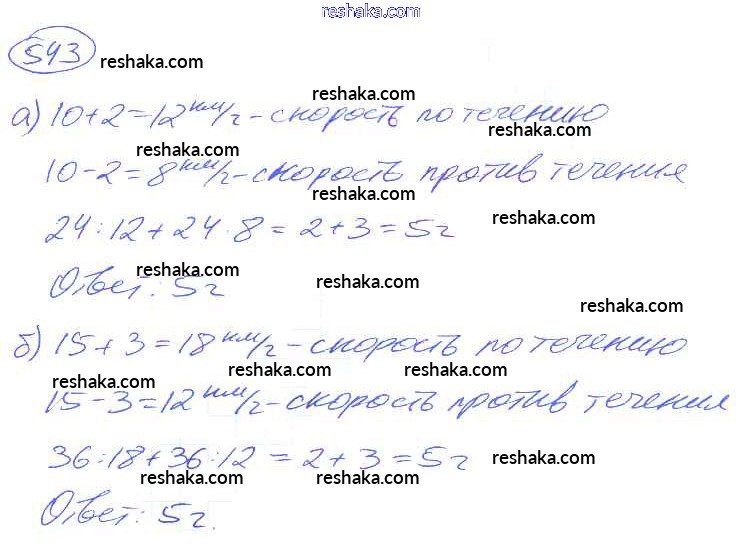 reshaka.com
543 reshaka.com
reshaka.com
а) 10+2=12 км/ч - скорость по течению
reshaka.com reshaka.com
10-2=8 км/ч - скорость против течения
reshaka.com reshaka.com
24:12+24·8=2+3=5ч
reshaka.com reshaka.com
Ответ: 5ч
reshaka.com
б) 15+3=18 км/ч - скорость по течению
reshaka.com reshaka.com reshaka.com
15-3=12 км/ч - скорость против течения
36:18+36:12=2+3=5ч
reshaka.com
reshaka.com reshaka.com
Ответ: 5ч.